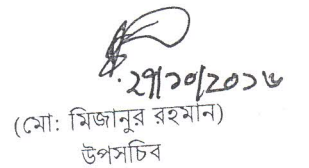 ২৭/১০/২০১৬
(মো: মিজানুর রহমান)
উপসচিব